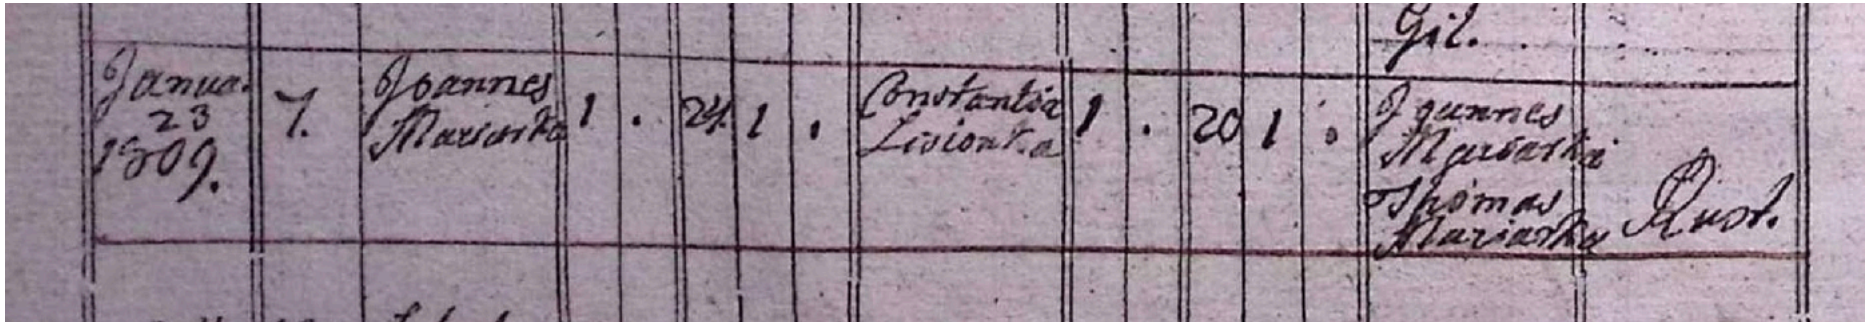 Gil.
Janua.
23
1809.
7.
Joannes
Mariaska
1 . 24 1 .
Constantia
1 . 20 1 .
Joannes
Mariaska
Thomas
Mariaska
Rust.